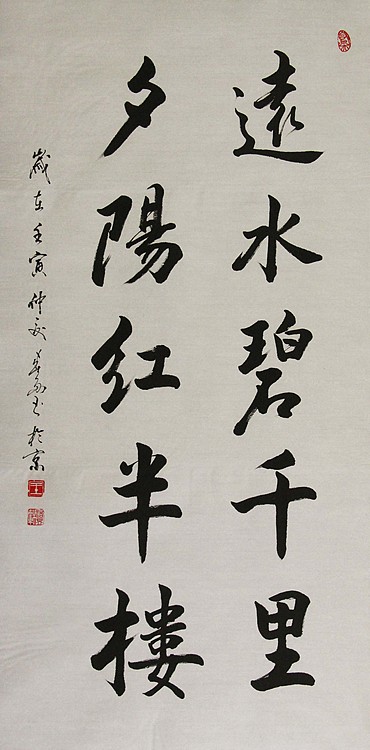 遠水碧千里
夕陽红半樓
歲在壬寅仲秋書於京